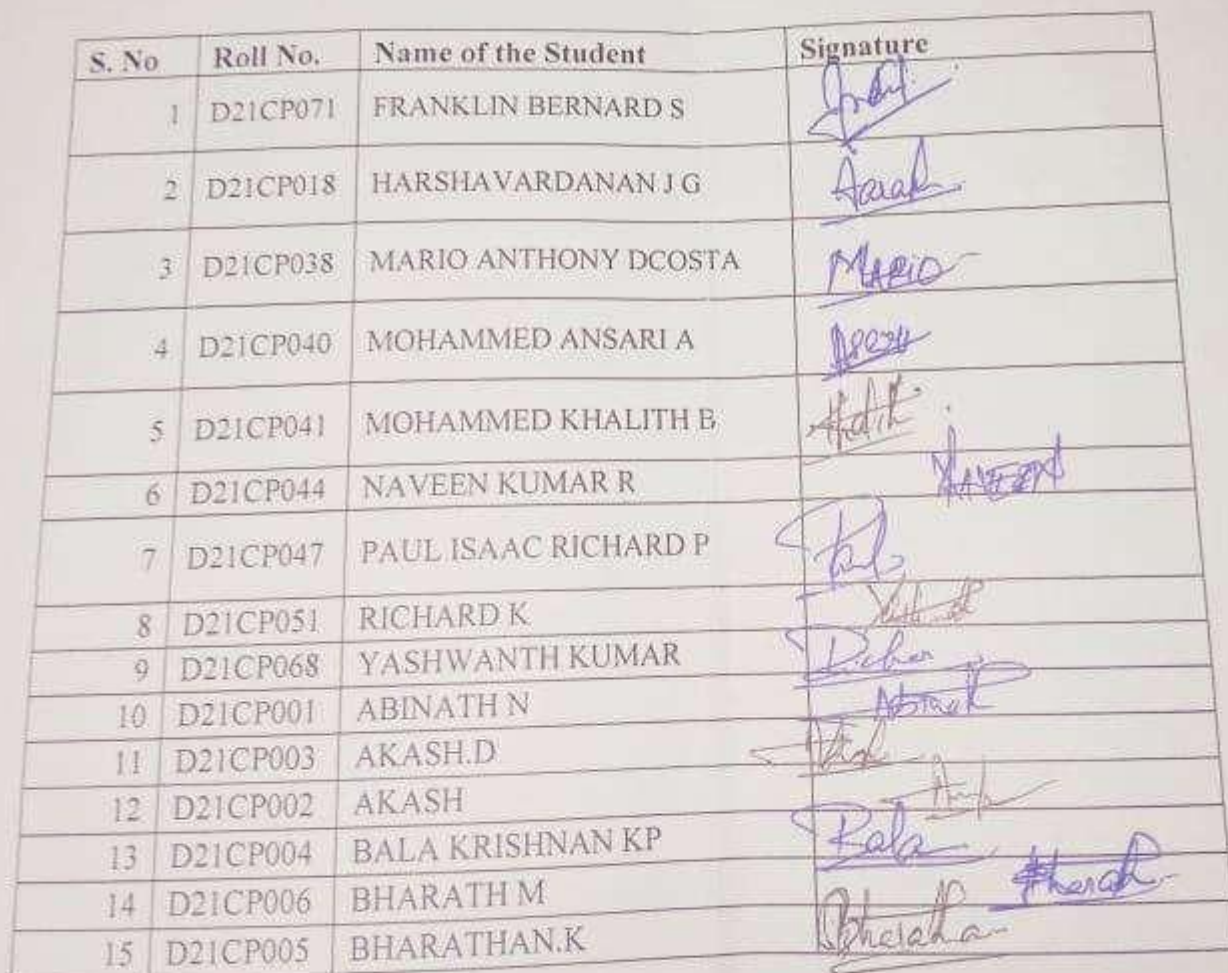 S. No Roll No. Name of the Student Signature
1 D21CP071 FRANKLIN BERNARD S
2 D21CP018 HARSHAVARDANAN J G
3 D21CP038 MARIO ANTHONY DCOSTA MARIO
4 D21CP040 MOHAMMED ANSARI A
5 D21CP041 MOHAMMED KHALITH B
6 D21CP044 NAVEEN KUMAR R
7 D21CP047 PAUL ISAAC RICHARD P Paul
8 D21CP051 RICHARD K
9 D21CP068 YASHWANTH KUMAR
10 D21CP001 ABINATH N
11 D21CP003 AKASH.D
12 D21CP002 AKASH
13 D21CP004 BALA KRISHNAN KP Bala
14 D21CP006 BHARATH M
15 D21CP005 BHARATHAN.K